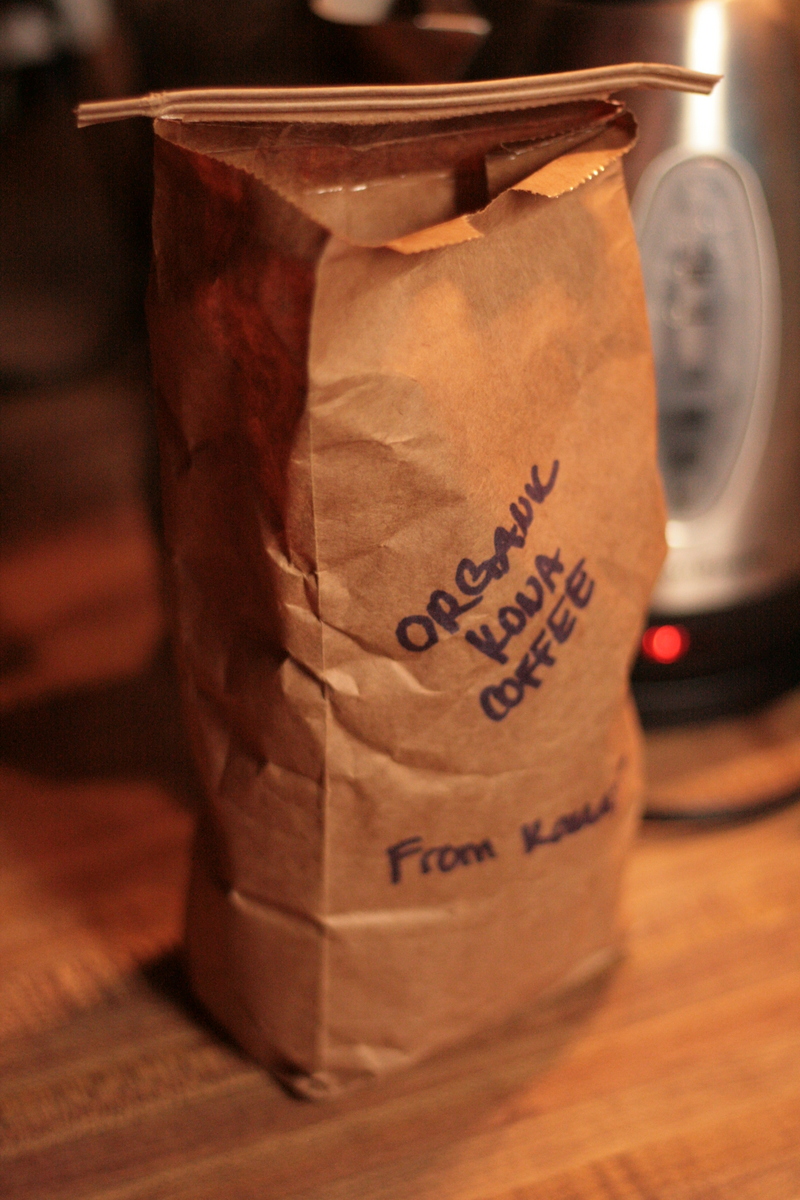 ORGANIC
KONA
COFFEE
From Kona